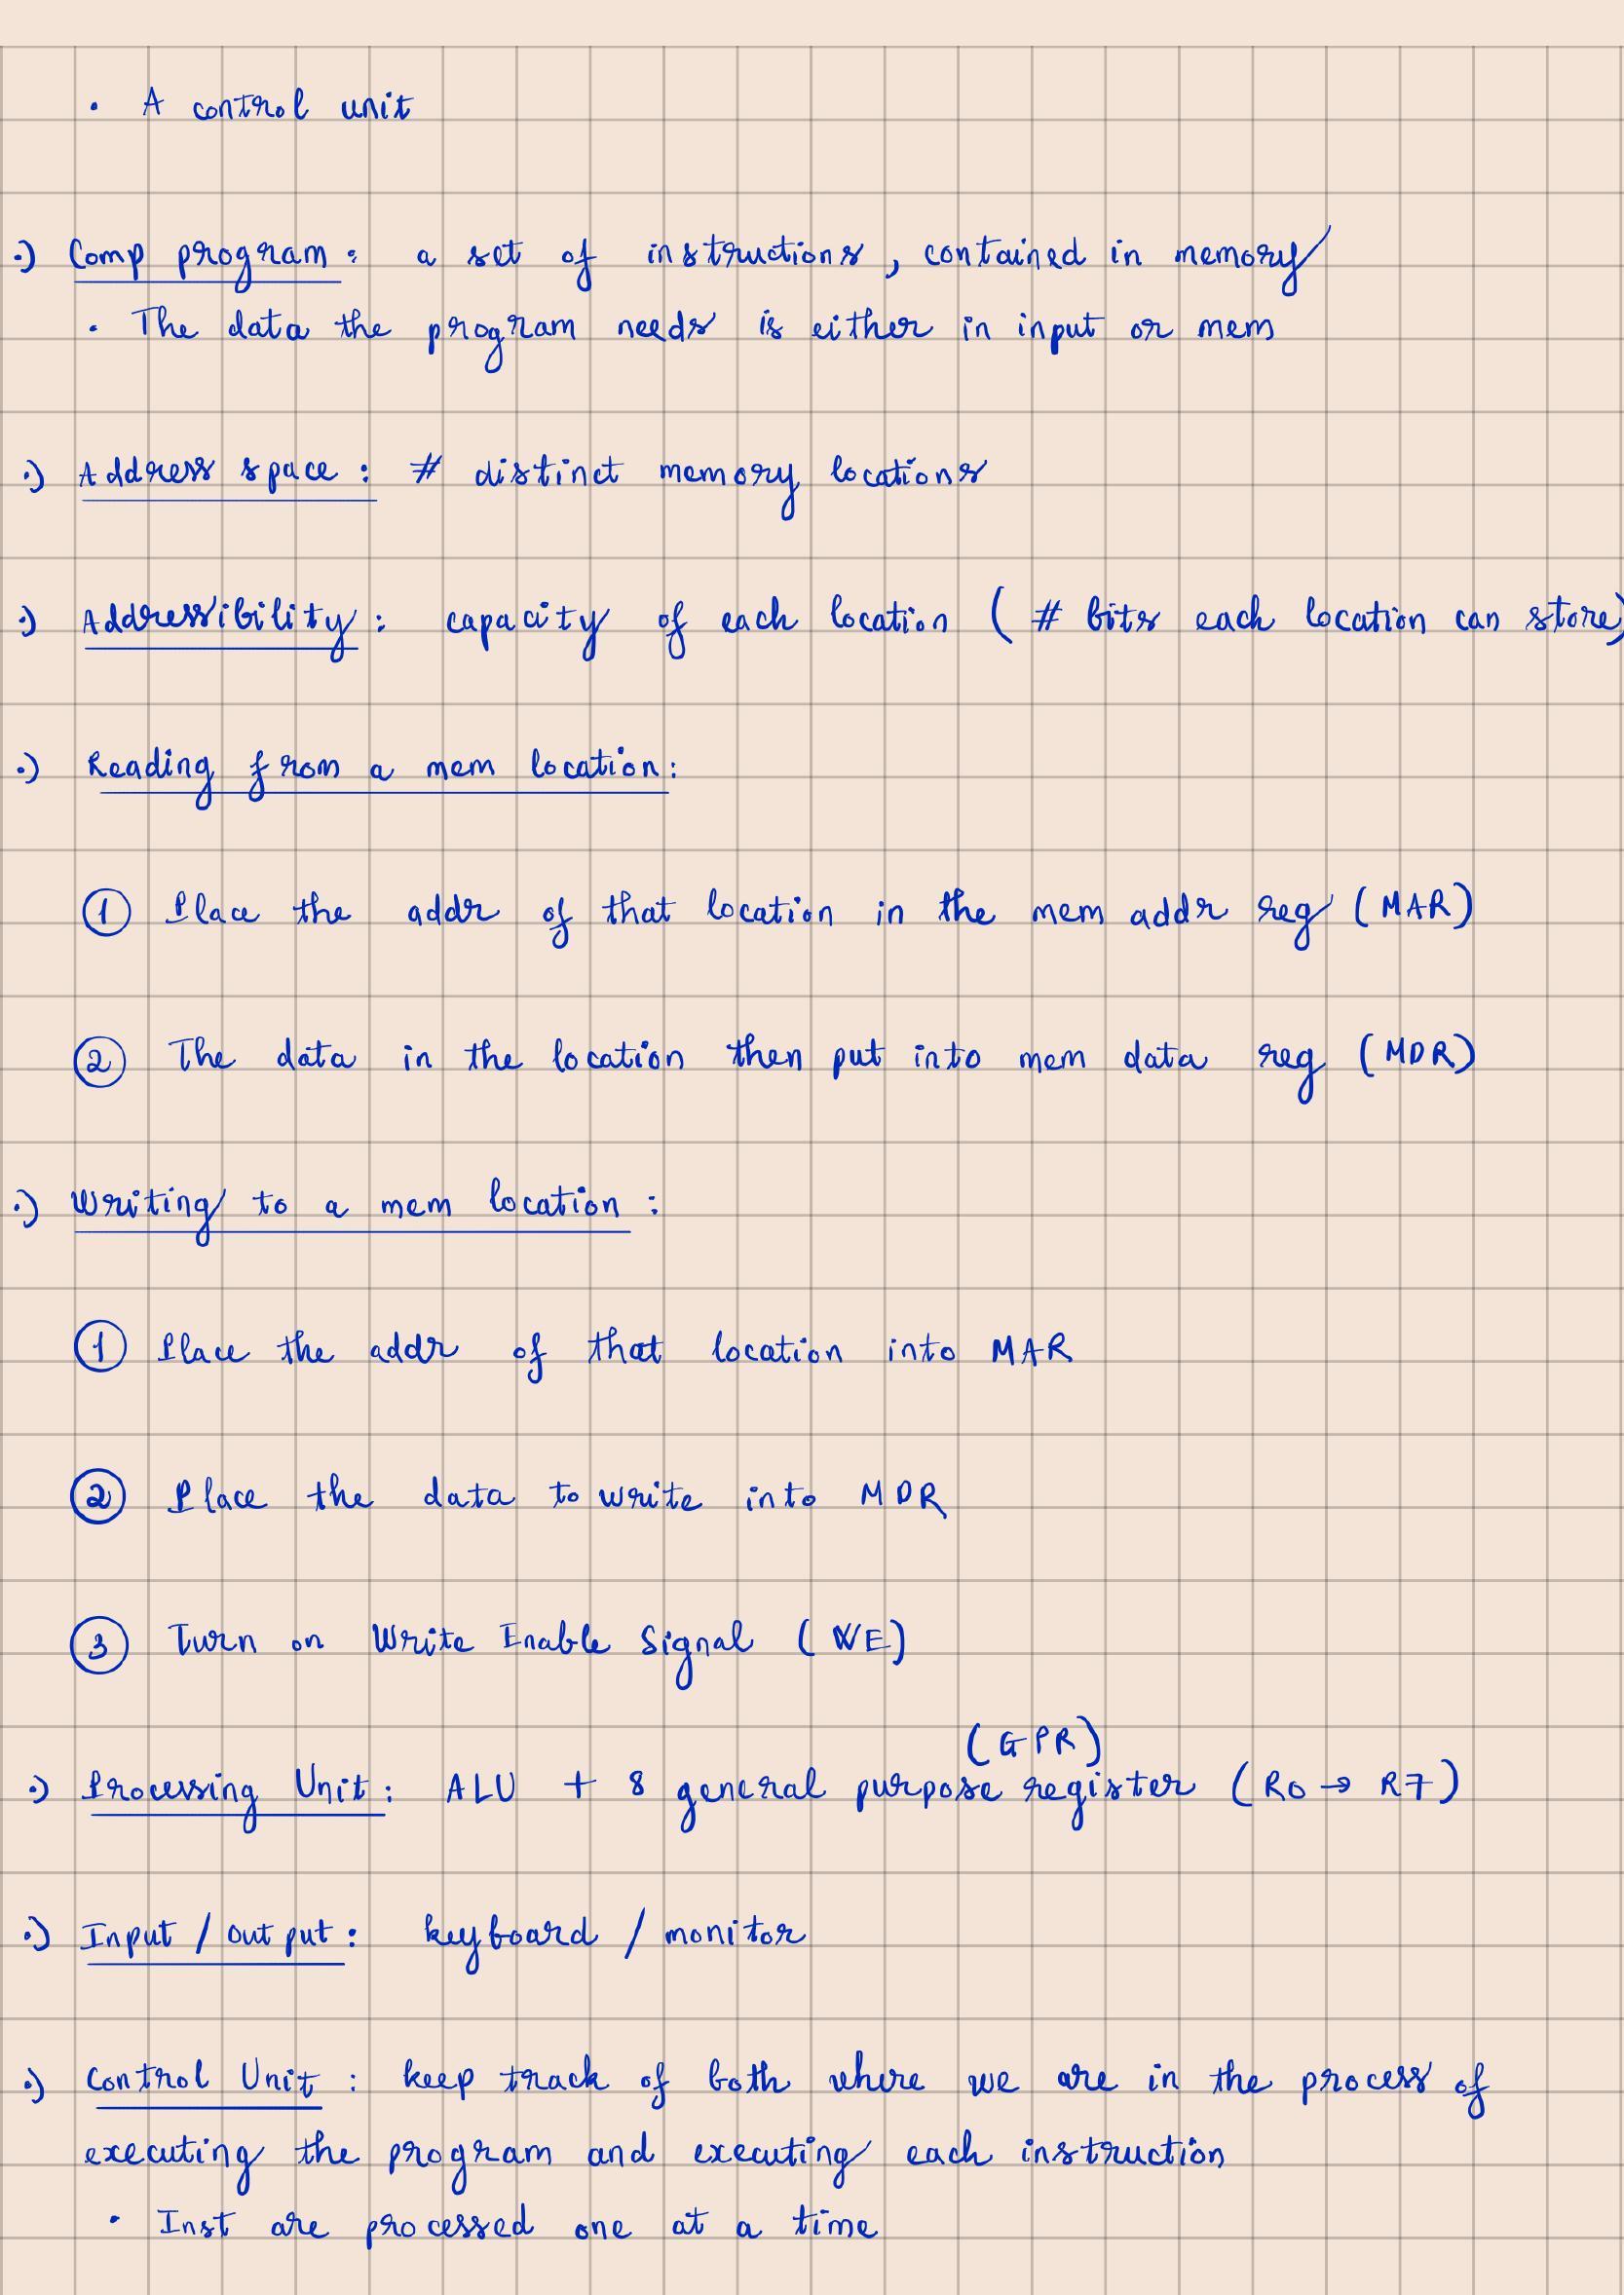 · A control unit
·) Comp program: a set of instructions, contained in memory
· The data the program needs is either in input or mem
·) Address space: # distinct memory locations
·) Addressibility: capacity of each location (# bits each location can store)
·) Reading from a mem location:
① Place the addr of that location in the mem addr reg (MAR)
② The data in the location then put into mem data reg (MDR)
·) Writing to a mem location:
① Place the addr of that location into MAR
② Place the data to write into MDR
③ Turn on Write Enable Signal (WE)
(GPR)
·) Processing Unit: ALU + 8 general purpose register (R0 → R7)
·) Input / output: keyboard / monitor
·) Control Unit: keep track of both where we are in the process of
executing the program and executing each instruction
· Inst are processed one at a time